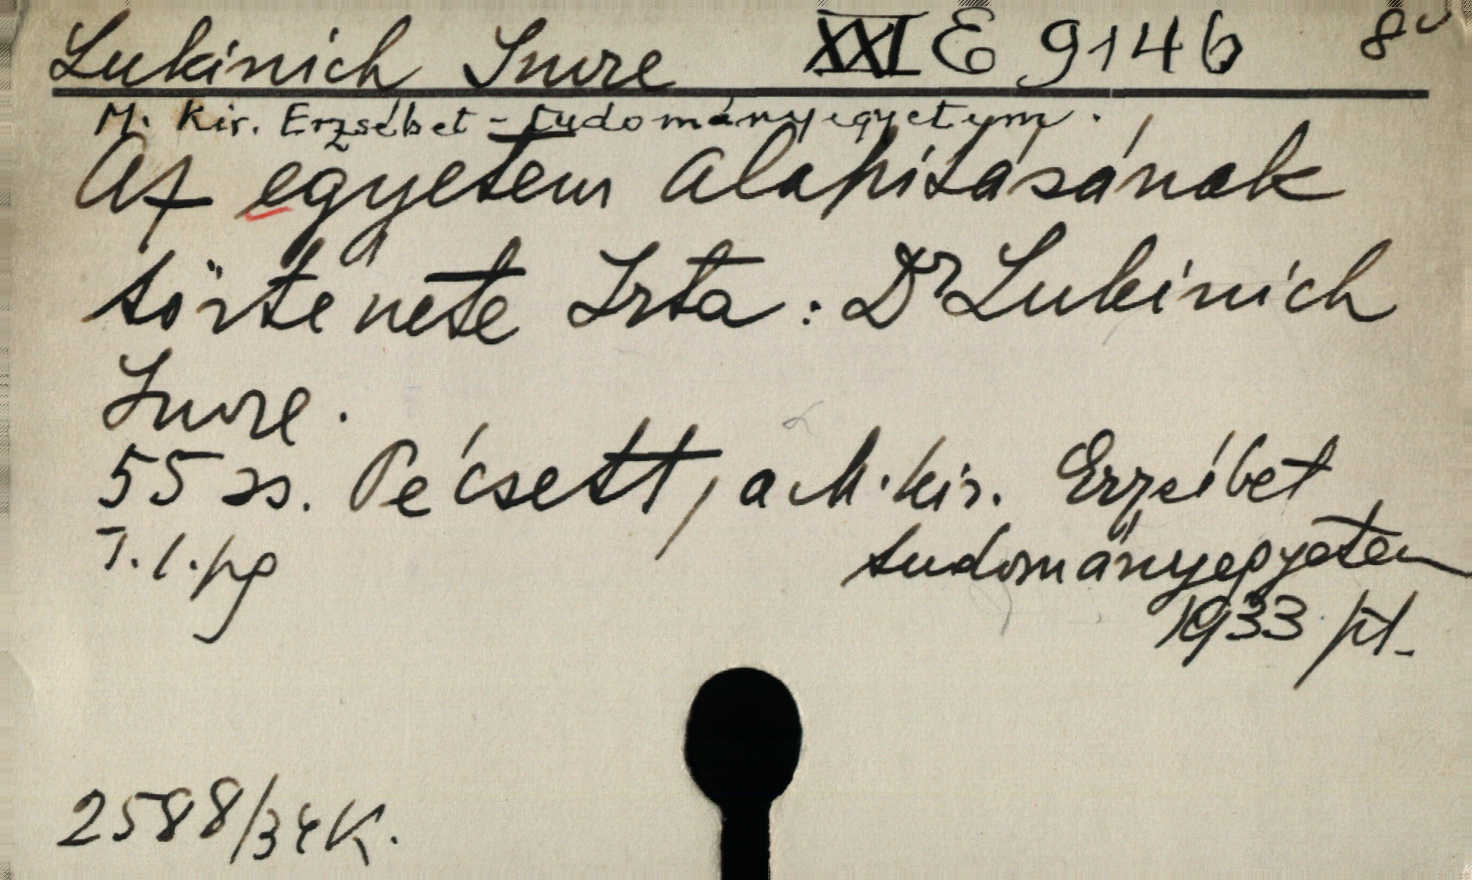 Lukinich Imre XXI E 9146 8°
M. Kir. Erzsébet-tudományegyetem.
Az egyetem alapításának
története Irta: Dr Lukinich
Imre.
55 ss. Pécsett, a M. kir. Erzsébet
T. l. pg tudományegyetem
1933
2588/34K.